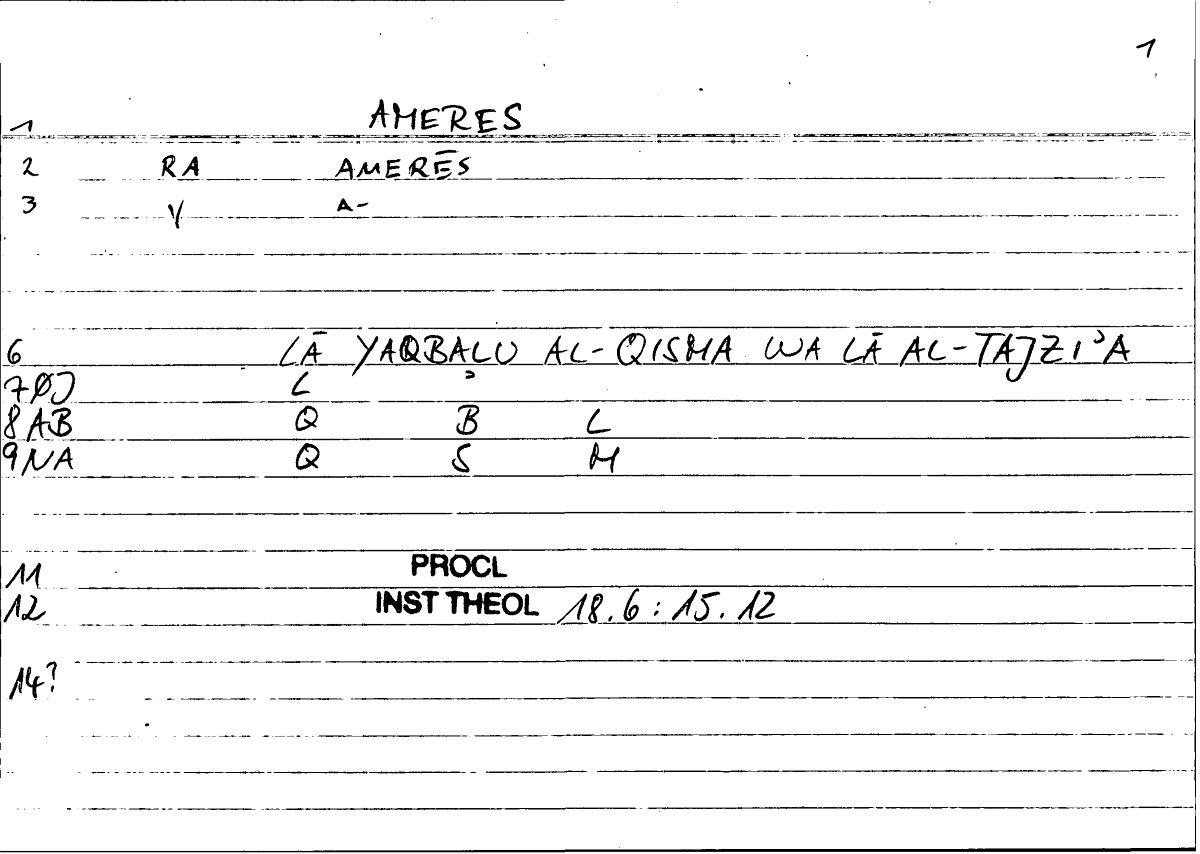 1
1 AMERES
2 RA AMERĒS
3 V A-
6 LĀ YAQBALU AL-QISMA WA LĀ AL-TAJZIʾA
7ØJ L ʾ
8AB Q B L
9NA Q S M
11 PROCL
12 INST THEOL 18.6 : 15.12
14?